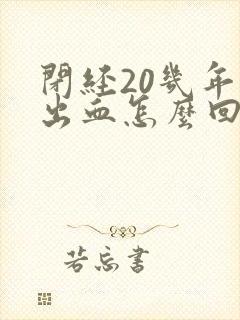 閉経20幾年
出血怎麼回
若忘書